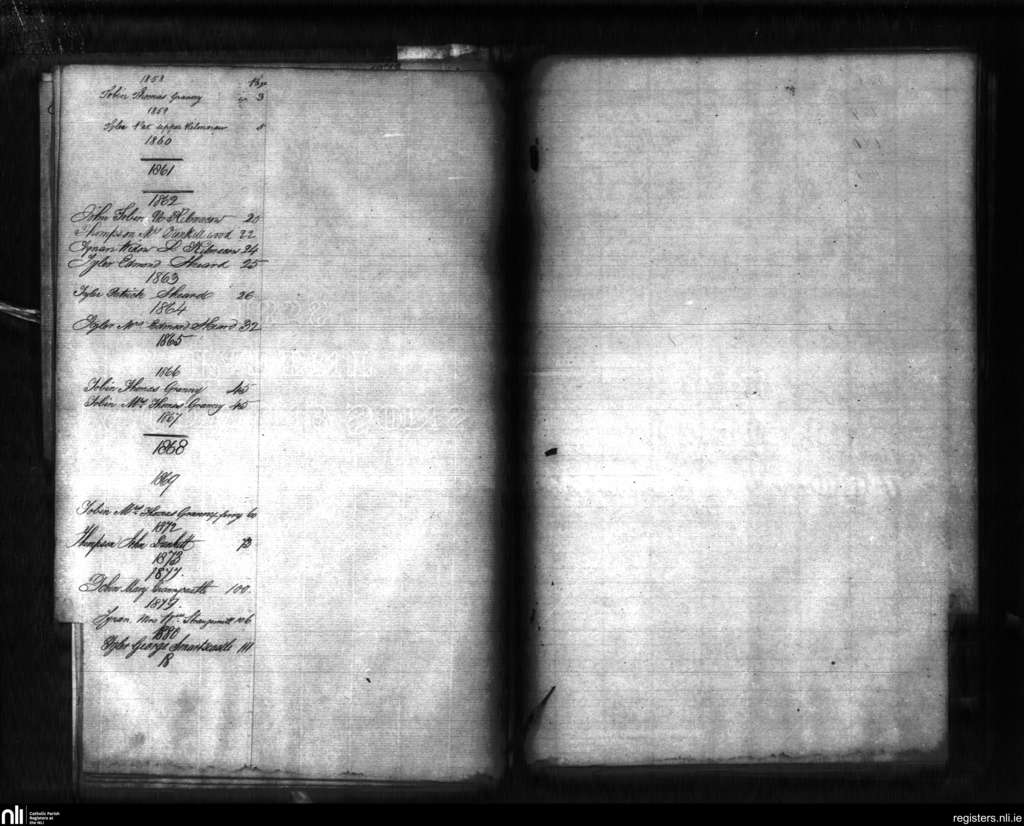 1858 Page
Tobin Thomas Granny 3
1859
Tyler Pat upper Kilmacow 8
1860
1861
1862
John Tobin Up Kilmacow 20
Thompson Mrs Dunkitt wood 22
Tynan Widow L Kilmacow 24
Tyler Edmond Skeard 25
1863
Tyler Patrick Skeard 26
1864
Tyler Mrs Edmond Skeard 32
1865
1866
Tobin Thomas Granny 45
Tobin Mrs Thomas Granny 45
1867
1868
1869
Tobin Mrs Thomas Granny ferry 60
1872
Thompson John Dunkitt 73
1873
1877.
Tobin Mary 100.
1879.
Tynan Mrs Wm 106
1880
Tyler George Smartscastle 111
18
nli
Catholic Parish
Registers at
the NLI
registers.nli.ie